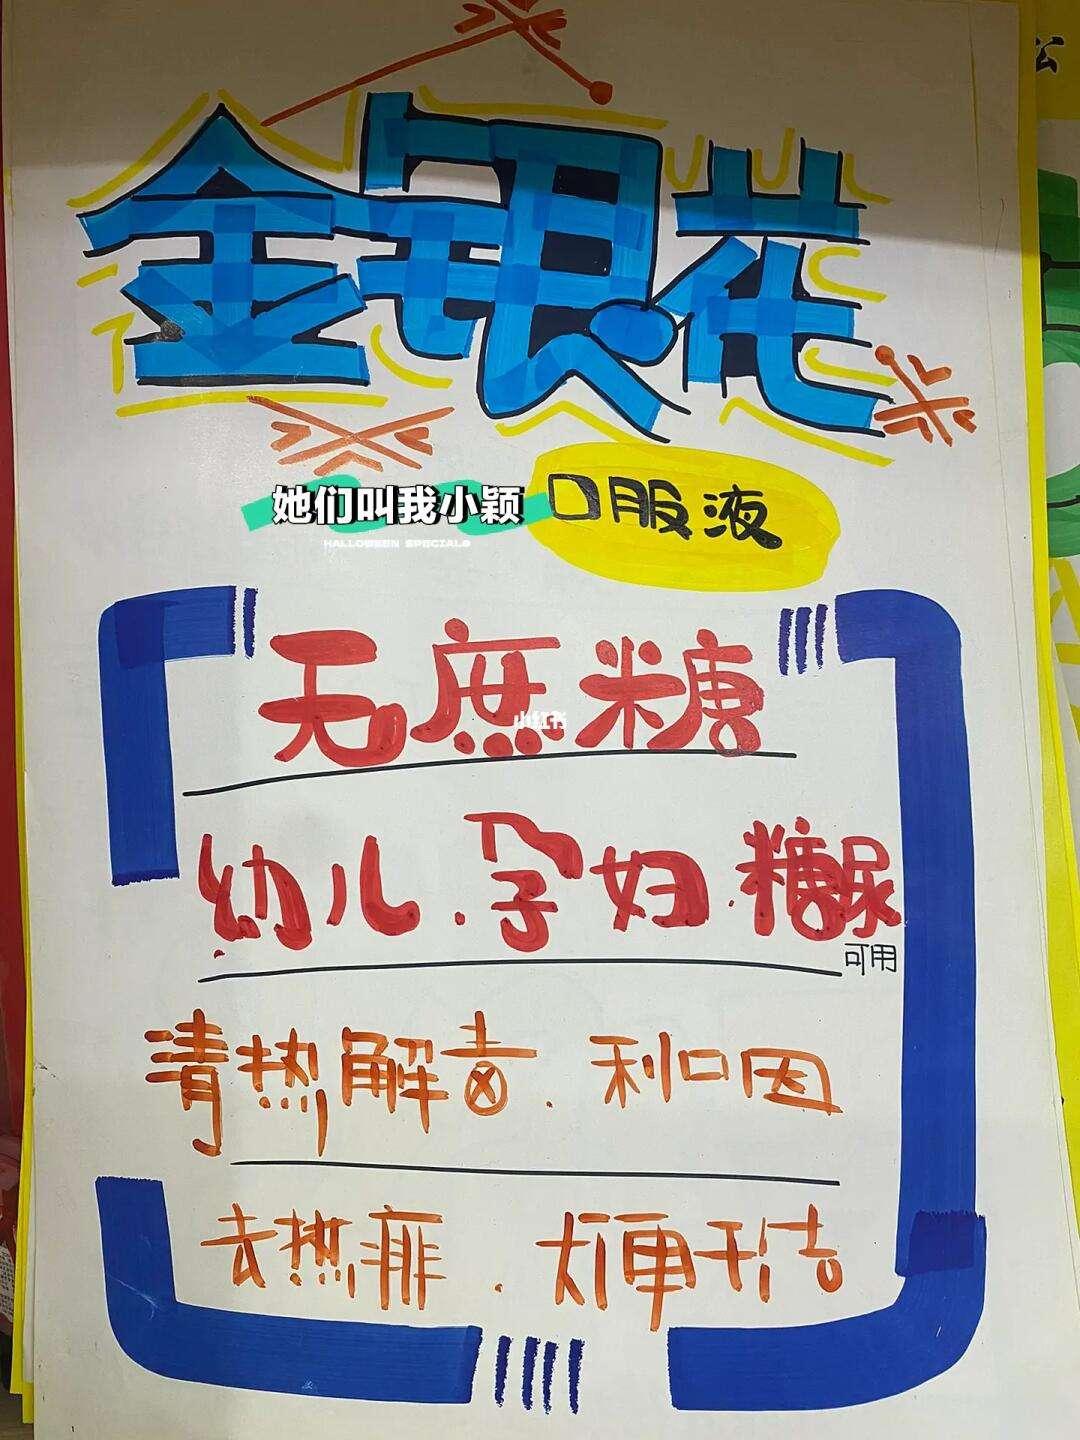 公
金银花
她们叫我小颖
HALLOWEEN SPECIALS
口服液
无庶糖
小红书
幼儿.孕妇.糖尿
可用
清热解毒.利咽
去热痱.大便干结